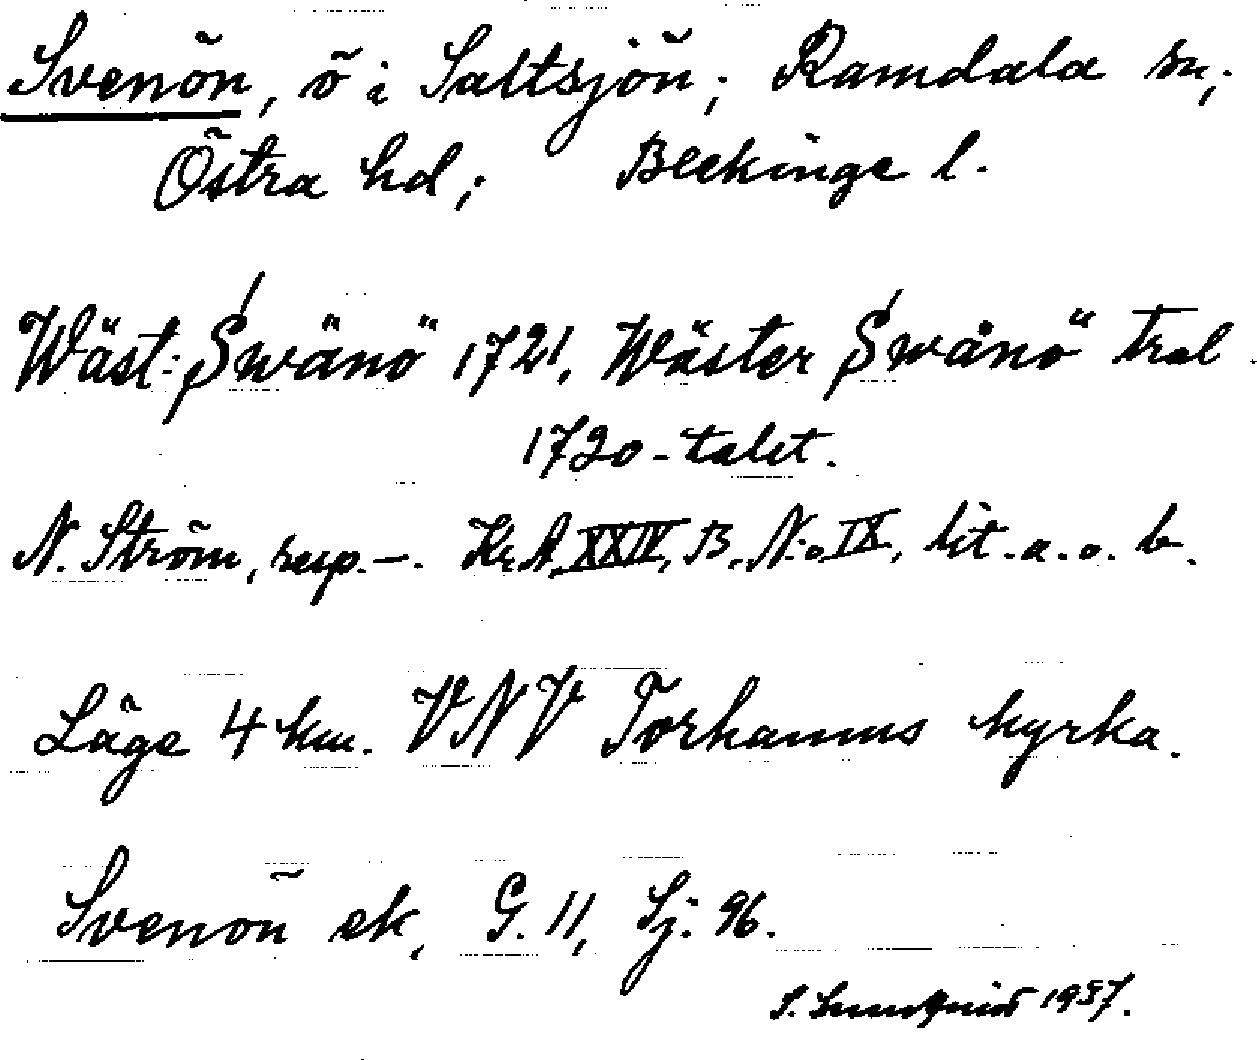 Svenön, ö i Saltsjön; Ramdala sn;
Östra hd; Blekinge l.
Wäst: Swänö 1721, Wäster Swånö tral
1720-talet.
N. Ström, resp. –. Kr.A. XXIV, B. No IX, lit. a. o. b.
Läge 4 km. VNV Torhamns kyrka.
Svenön ek, G. 11, Sj: 96.
1937.